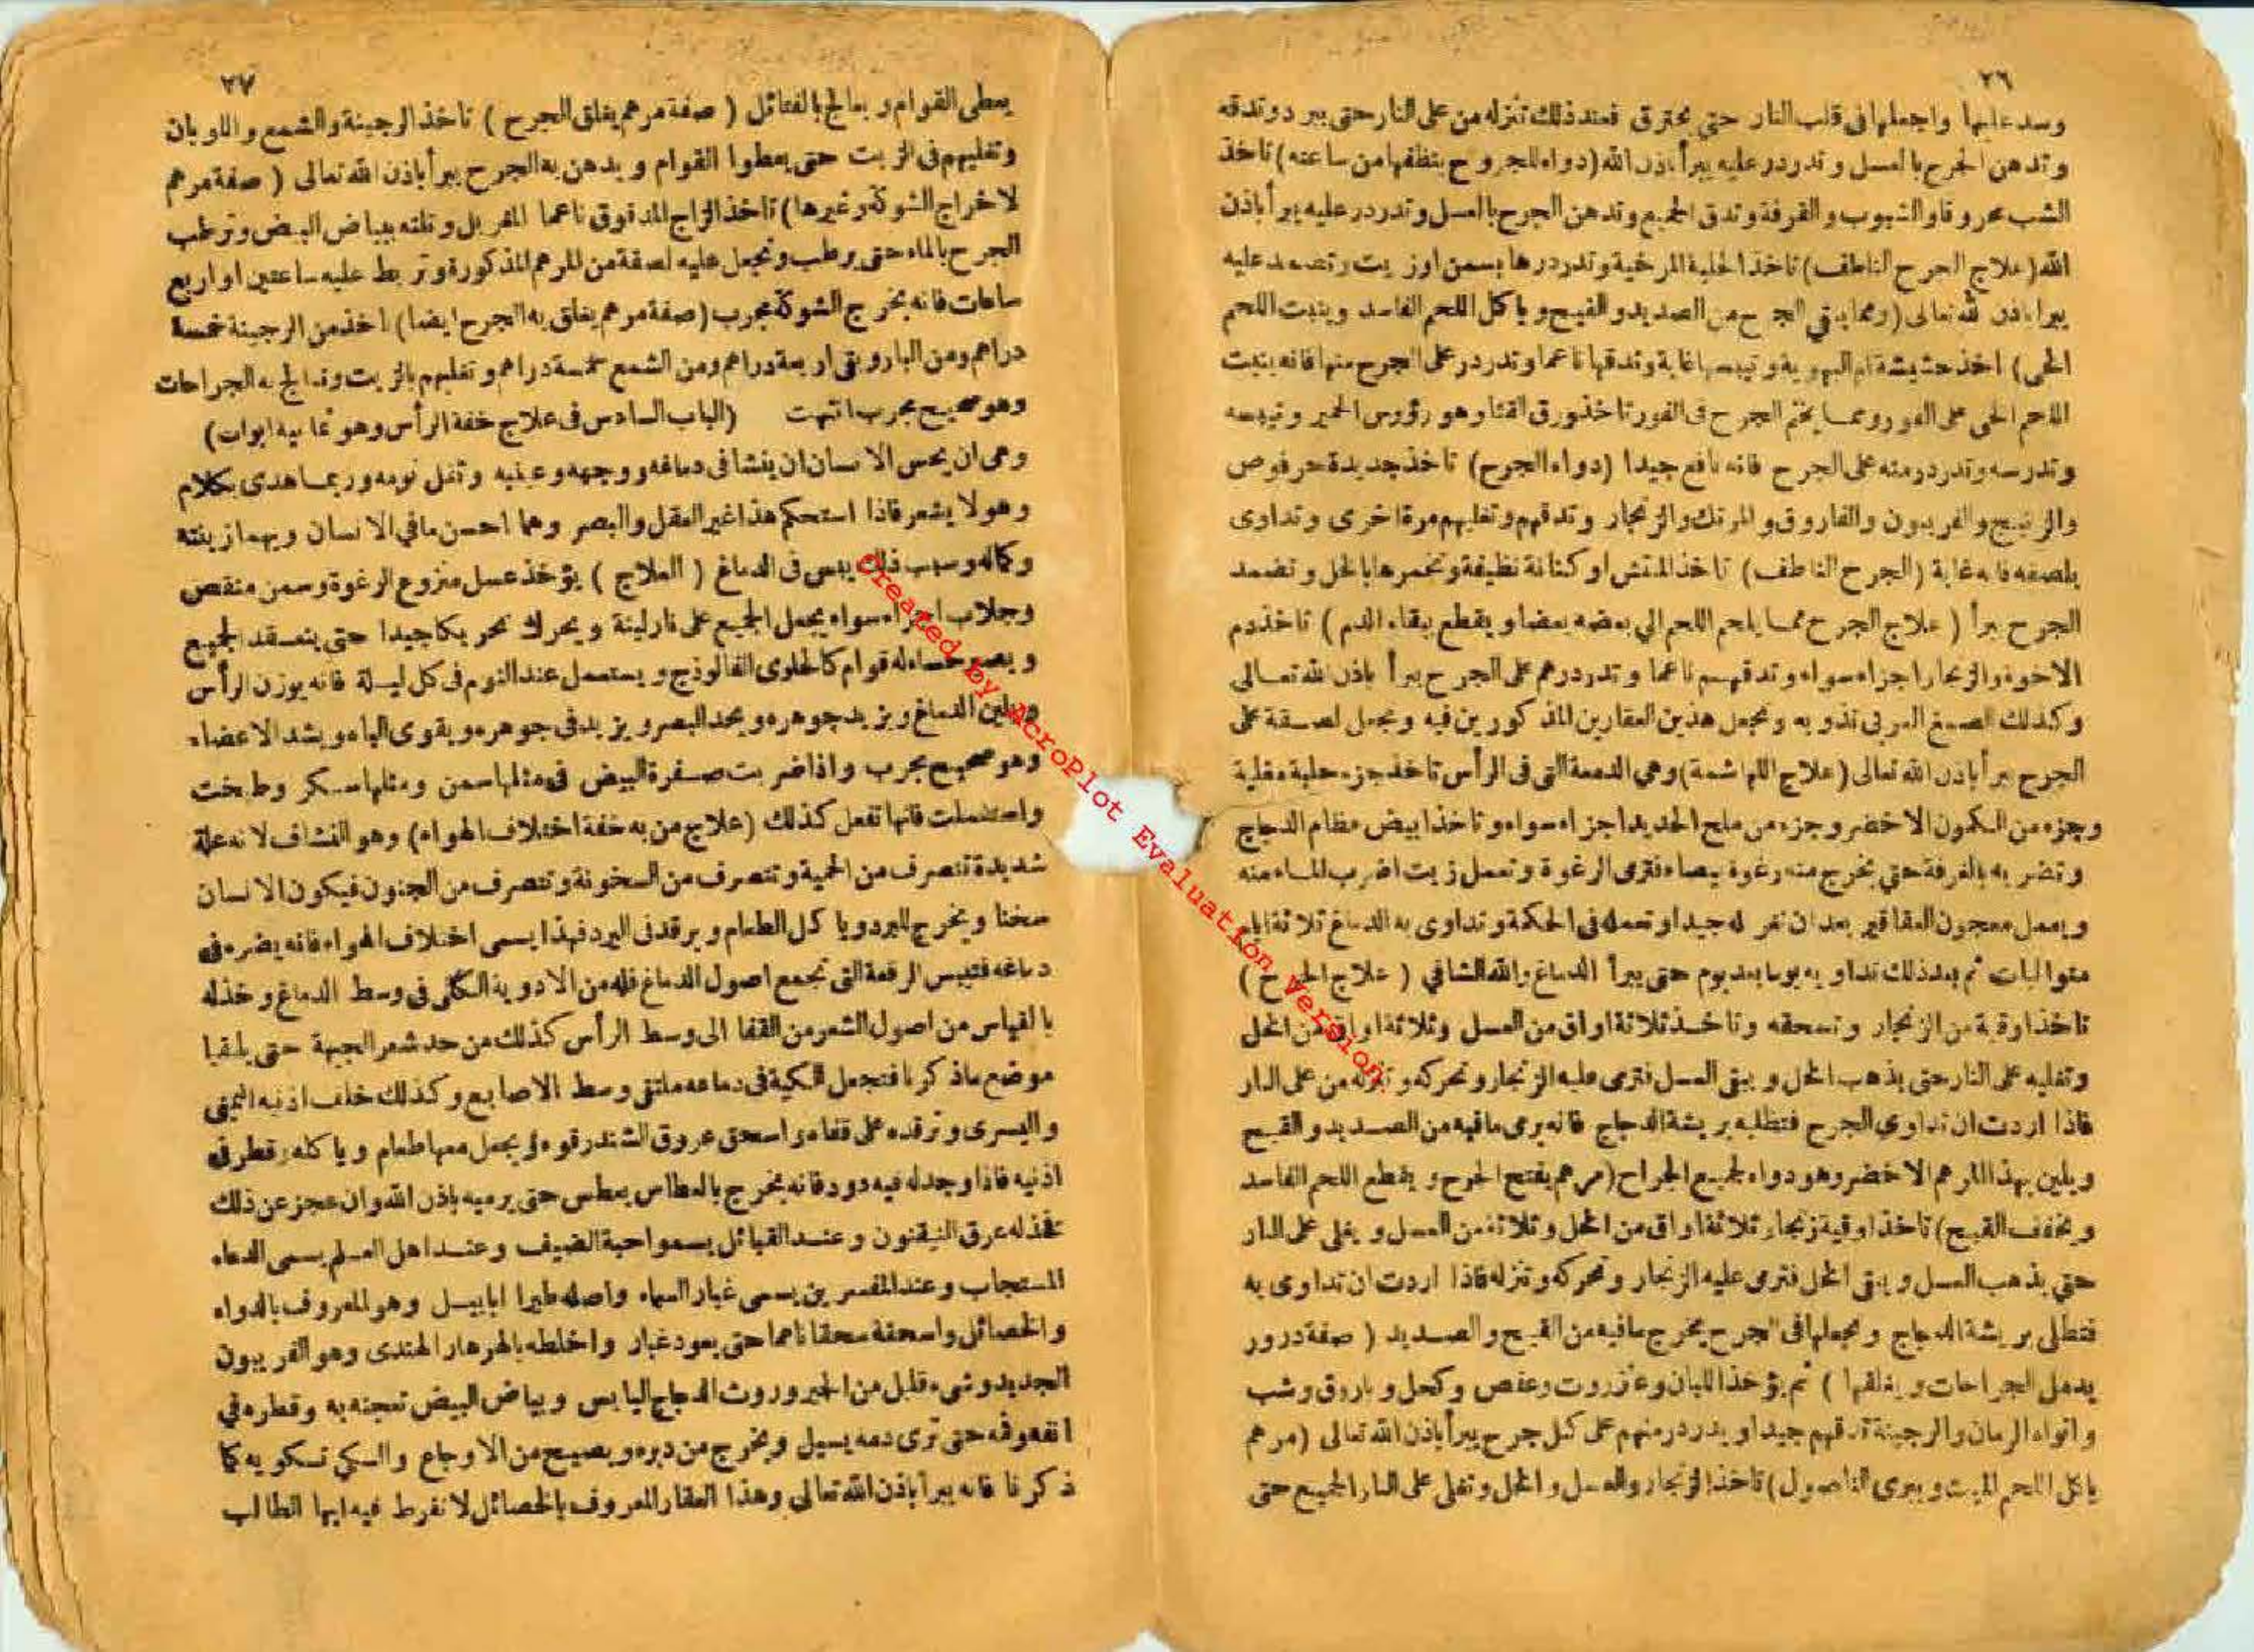 ٢٦
وسد عليها واجعلها فى قلب النار حتى يحترق فعند ذلك تنزله من على النار حتى يبرد وتدقه
وتدهن الجرح بالعسل وتدردر عليه يبرأ باذن الله (دواء للجروح ينظفها من ساعته) تاخذ
الشب محروقا والشبوب والقرفة وتدق الجميع وتدهن الجرح بالعسل وتدردر عليه يبرأ باذن
الله (علاج الجرح الناطف) تاخذ الحلبة المرخية وتدردرها بسمن او زيت وتضمد عليه
يبرا باذن الله تعالى (ومما ينقي الجرح من الصديد والقيح وياكل اللحم الفاسد وينبت اللحم
الحى) اخذ حشيشة ام البهوية وتيبسها غاية وتدقها ناعما وتدردر على الجرح منها فانه ينبت
اللحم الحى على الفور ومما يختم الجرح فى الفور تاخذ ورق القثا وهو رؤوس الحمير وتيبسه
وتدرسه وتدردر منه على الجرح فانه نافع جيدا (دواء الجرح) تاخذ جديدة حرقوص
والزنيج والفربيون والفاروق والمرتك والزنجار وتدقهم وتغليهم مرة اخرى وتداوى
بلصقه فانه غاية (الجرح الناطف) تاخذ المتش او كتانة نظيفة وتخمرها بالخل وتضمد
الجرح يبرأ (علاج الجرح مما يلحم اللحم الي بعضه بعضا ويقطع بقاء الدم) تاخذ دم
الاخوة والزنجار اجزاء سواء وتدقهم ناعما وتدردرهم على الجرح يبرأ باذن الله تعالى
وكذلك الصمغ العربى تذوبه وتجعل هذين العقارين المذكورين فيه وتجعل لصقة على
الجرح يبرأ باذن الله تعالى (علاج اللهاشمة) وهي الدمعة التى فى الرأس تاخذ جزء حلبة مقلية
وجزء من الكمون الاخضر وجزء من ملح الحديد اجزاء سواء وتاخذ ابيض عظام الدجاج
وتضربه بالغرفة حتى يخرج منه رغوة بيضاء فترمى الرغوة وتعمل زيت اضرب الماء منه
ويعمل معجون العقاقير بعد ان له جيدا وتعمله فى الحكمة وتداوى به الدماغ ثلاثة ايام
متواليات ثم بعد ذلك تداويه يوما بعد يوم حتى يبرأ الدماغ والله الشافي (علاج الجرح)
تاخذ اوقية من الزنجار وتسحقه وتاخذ ثلاثة اواق من العسل وثلاثة اواق من الخل
وتغليه على النار حتى يذهب الخل ويبقى العسل فترمى عليه الزنجار وتحركه وتنزله من على النار
فاذا اردت ان تداوى الجرح فتطلبه بريشة الدجاج فانه يرمى ما فيه من الصديد والقيح
ويلين بهذا المرهم الاخضر وهو دواء لجميع الجراح (مرهم يفتح الجرح ويقطع اللحم الفاسد
ويخفف القيح) تاخذ اوقية زنجار ثلاثة اواق من الخل وثلاثة من العسل ويغلى على النار
حتى يذهب العسل ويبقى الخل فترمى عليه الزنجار وتحركه وتنزله فاذا اردت ان تداوى به
فتطلى بريشة الدجاج وتجعلها فى الجرح يخرج ما فيه من القيح والصديد (صفة درور
يدمل الجراحات ويغلقها) ثم يؤخذ اللبان وعنزروت وعفص وكحل وباروق وشب
وانواء الرمان والرجينة تدقهم جيدا ويدردر منهم على كل جرح يبرأ باذن الله تعالى (مرهم
ياكل اللحم الميت ويبرى الناصول) تاخذ الزنجار والعسل والخل وتغلى على النار الجميع حتى
٢٧
يعطى القوام ويعالج بالفتائل (صفة مرهم يغلق الجرح) تاخذ الرجينة والشمع واللوبان
وتغليهم فى الزيت حتى يعطوا القوام ويدهن به الجرح يبرأ باذن الله تعالى (صفة مرهم
لاخراج الشوكة وغيرها) تاخذ الزاج المدقوق ناعما المغربل وتلته ببياض البيض وترطب
الجرح بالماء حتى يرطب وتجعل عليه لصقة من المرهم المذكورة وتربط عليه ساعتين او اربع
ساعات فانه يخرج الشوكة مجرب (صفة مرهم يغلق به الجرح ايضا) اخذ من الرجينة خمسة
دراهم ومن الباروق اربعة دراهم ومن الشمع خمسة دراهم وتغليهم بالزيت وتعالج به الجراحات
وهو صحيح مجرب انتهت (الباب السادس فى علاج خفة الرأس وهو ثمانية ابواب)
وهى ان يحس الانسان ان ينشا فى دماغه ووجهه وعينيه وثقل نومه وربما هدى بكلام
وهو لا يشعر فاذا استحكم هذا غير العقل والبصر وهما احسن ما في الانسان وبهما زينته
وكماله وسبب ذلك يبس فى الدماغ (العلاج) يؤخذ عسل منزوع الرغوة وسمن منقص
وجلاب اجزاء سواء يجعل الجميع على نار لينة ويحرك تحريكا جيدا حتى ينعقد الجميع
ويصير حساء له قوام كالحلوى الفالوذج ويستعمل عند النوم فى كل ليلة فانه يوزن الرأس
ويلين الدماغ ويزيد جوهره ويحد البصر ويزيد فى جوهره ويقوى الباه ويشد الاعضاء
وهو صحيح مجرب واذا ضربت صفرة البيض فى مثلها سمن ومثلها سكر وطبخت
واستعملت فانها تفعل كذلك (علاج من به خفة اختلاف الهواء) وهو النشاف لانه علة
شديدة تتصرف من الحمية وتتصرف من السخونة وتتصرف من الجنون فيكون الانسان
سخنا ويخرج للبرد وياكل الطعام ويرقد فى البرد فهذا يسمى اختلاف الهواء فانه يضره فى
دماغه فتيبس الرقمة التى تجمع اصول الدماغ فله من الادوية الكى فى وسط الدماغ وخذله
بالقياس من اصول الشعر من القفا الى وسط الرأس كذلك من حد شعر الجبهة حتى يلتقيا
موضع ما ذكرنا فتجعل الكية فى دماغه ملتقى وسط الاصابع وكذلك خلف اذنيه اليمنى
واليسرى وترقده على قفاه واسحق عروق الشندرقوه ويجعل معها طعام وياكله وقطر فى
اذنيه فاذا وجد له فيه دود فانه يخرج بالعطاس يعطس حتى يرميه باذن الله وان عجز عن ذلك
فخذ له عرق النيقنون وعند القبائل يسمو احبة الضيف وعند اهل العلم يسمى الدعاء
المستجاب وعند المفسرين يسمى غبار السماء واصله طيرا ابابيل وهو المعروف بالدواء
والخصائل واسحقة سحقا ناعما حتى يعود غبار واخلطه بالهرهار الهندى وهو الفربيون
الجديد وشىء قليل من الخير وروث الدجاج اليابس وبياض البيض تعجنه به وقطره في
انفه وفه حتى ترى دمه يسيل ويخرج من دبره ويصيح من الاوجاع والكي تكويه كما
ذكرنا فانه يبرأ باذن الله تعالى وهذا العقار المعروف بالخصائل لا تفرط فيه ايها الطالب
Created by AcroPlot Evaluation Version